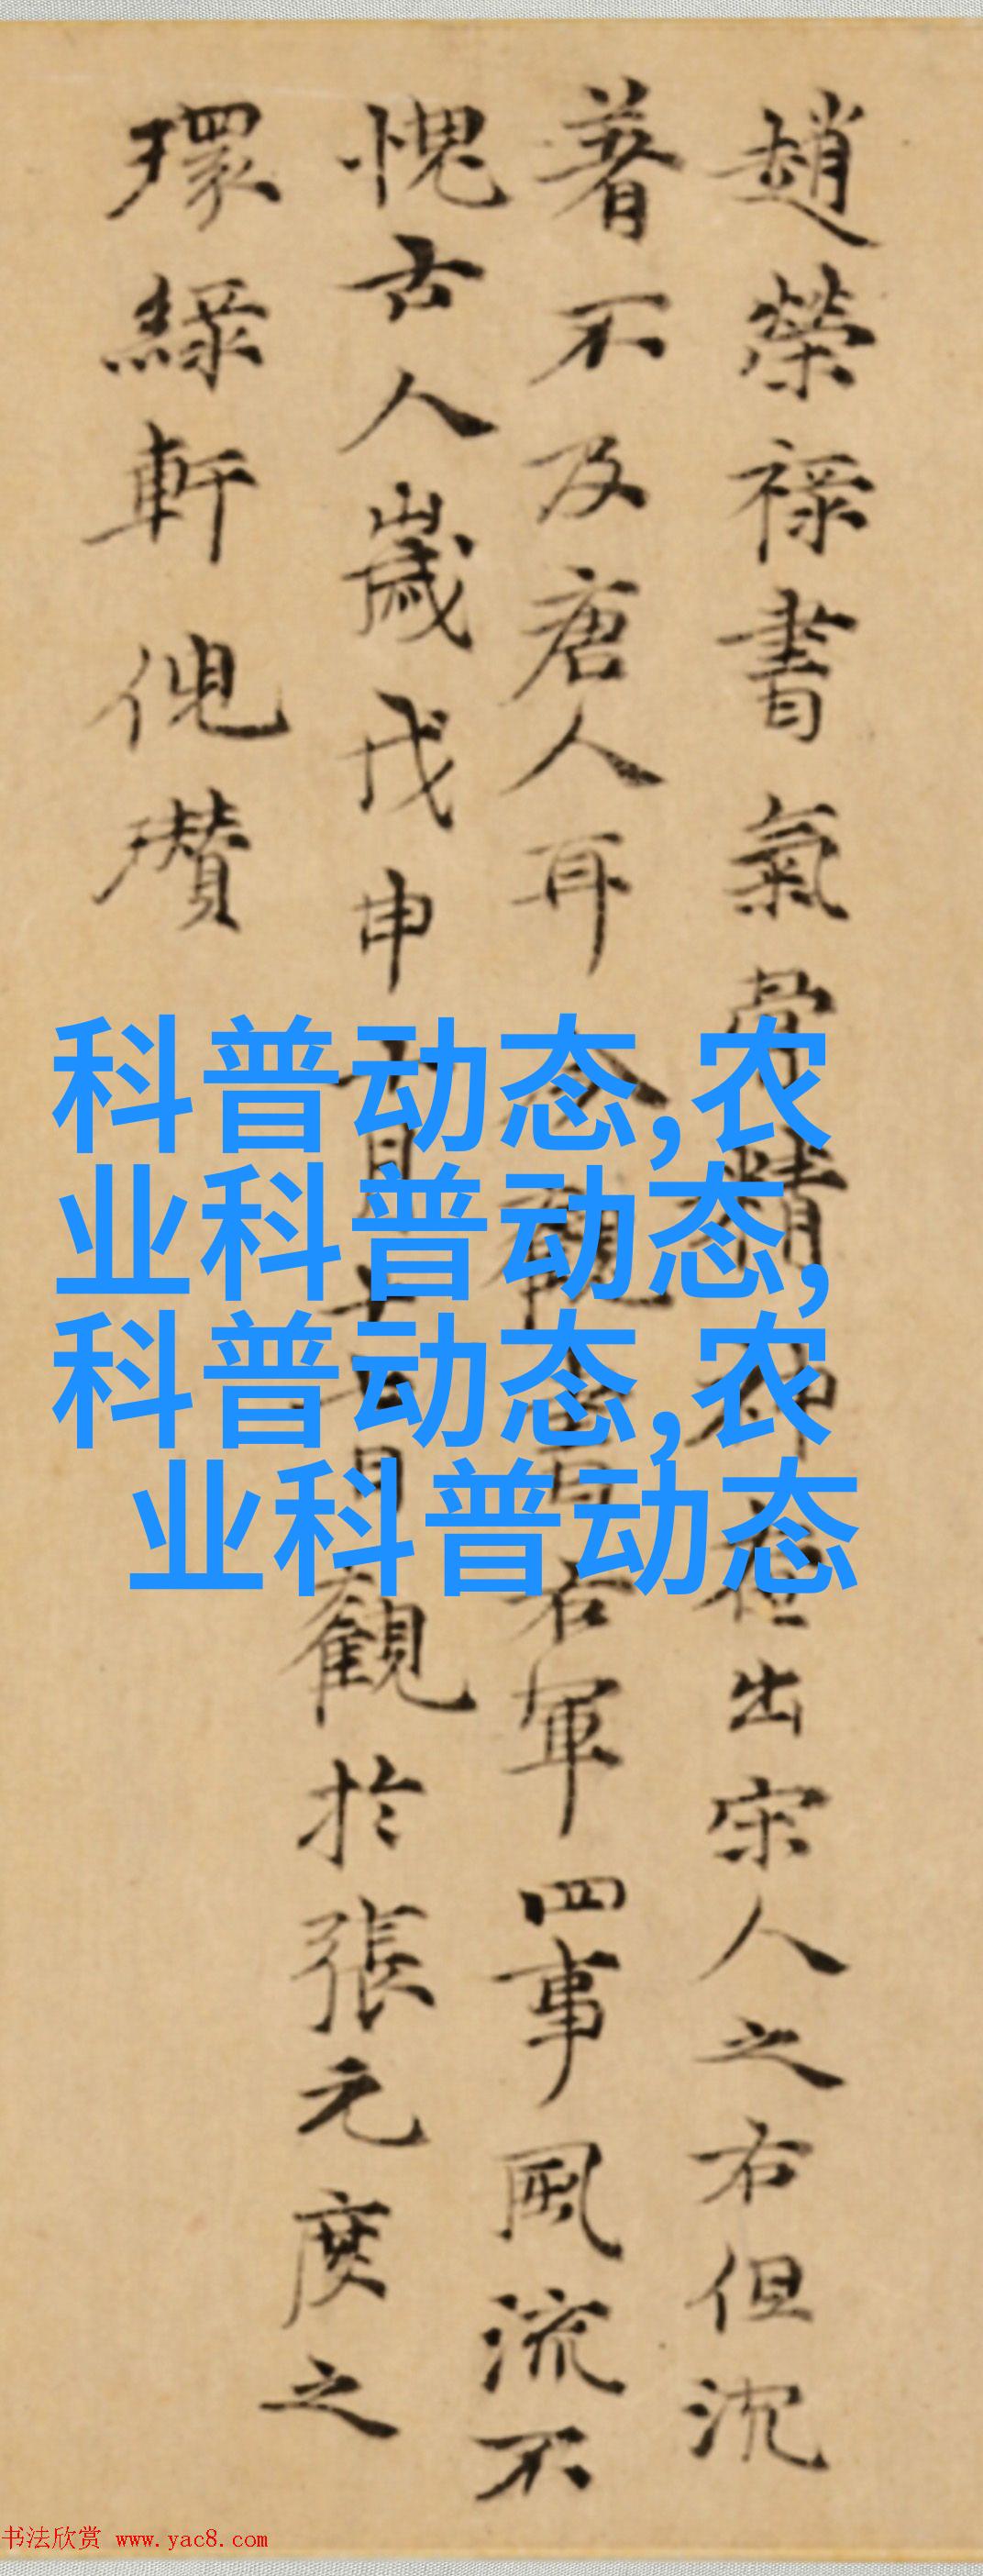 趙榮祿書氣骨精神出宋人之右但沉
著不及唐人耳今觀書右軍四事風流不
愧古人歲戊申十月十日觀於張元度之
環綠軒倪瓚
科普动态,农
业科普动态,
科普动态,农
业科普动态
书法欣赏 www.yac8.com